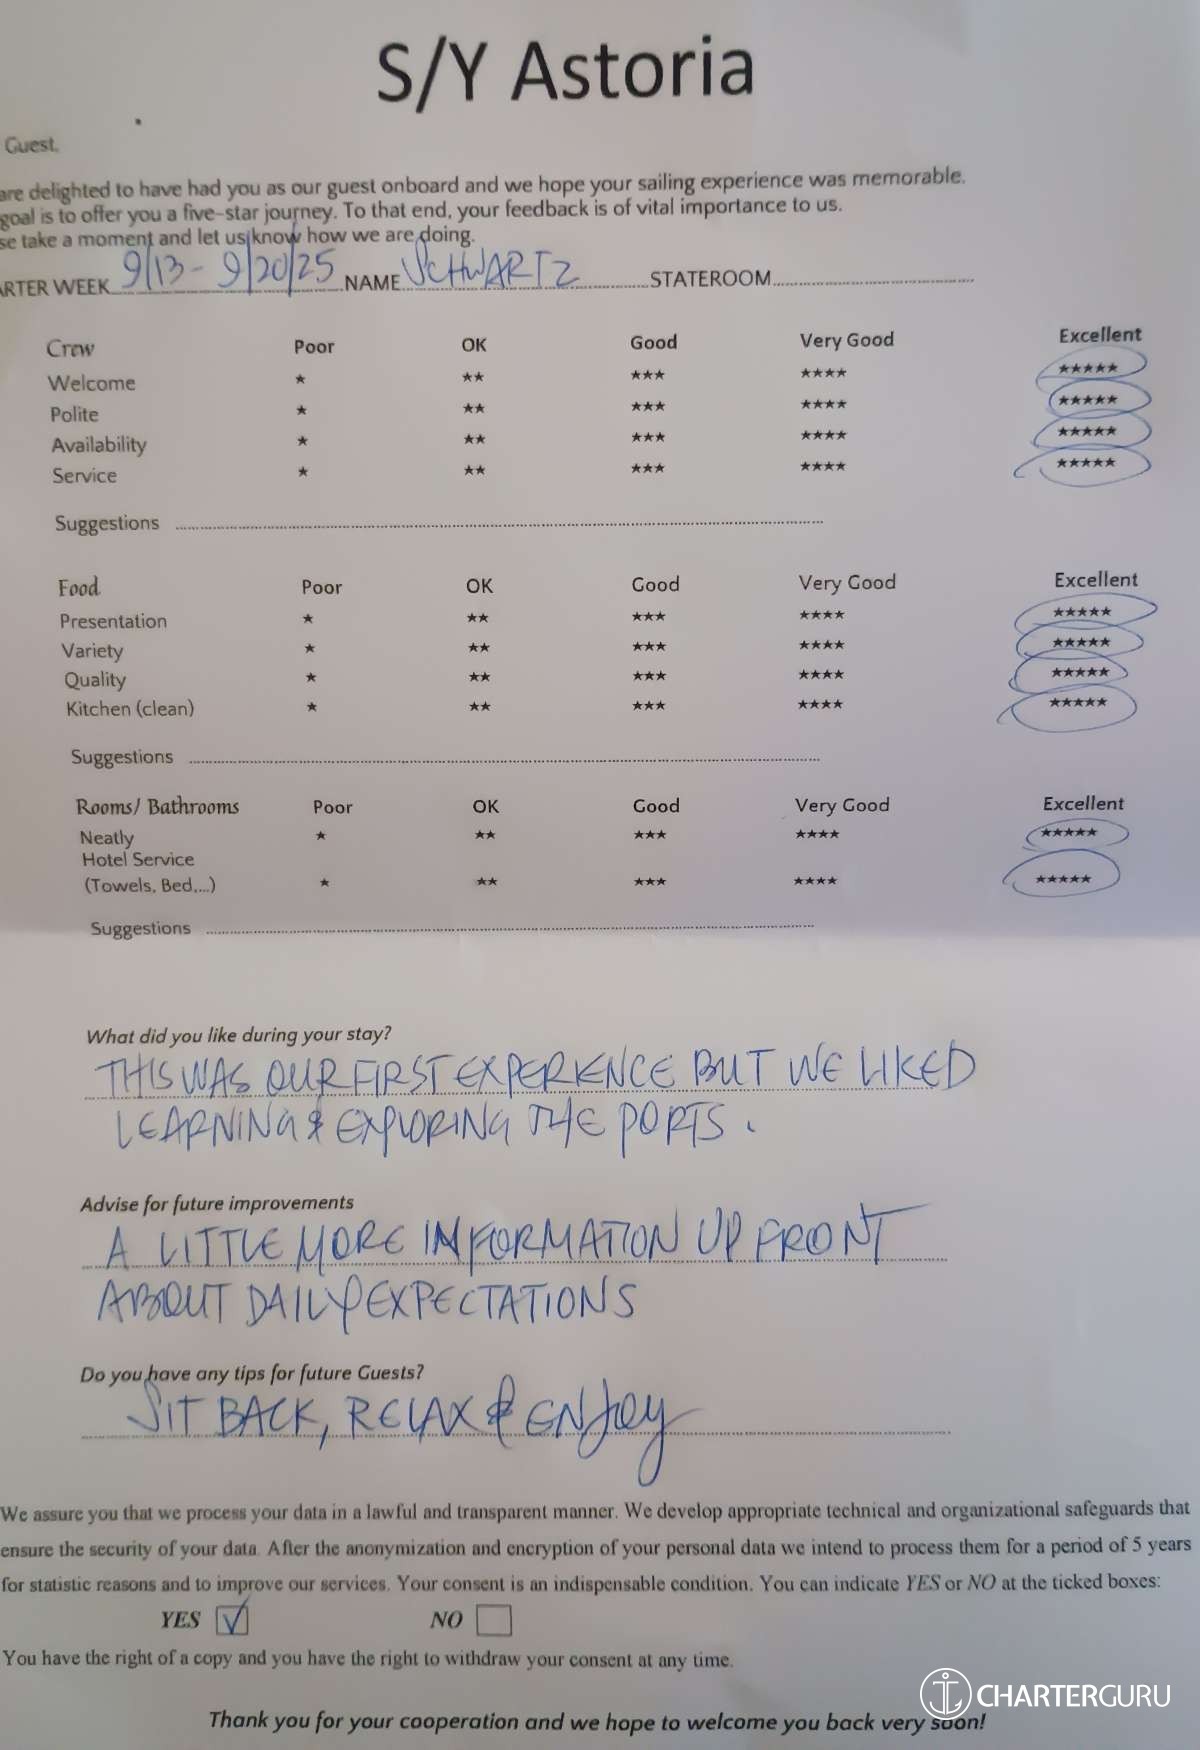 S/Y Astoria
Guest,
are delighted to have had you as our guest onboard and we hope your sailing experience was memorable.
goal is to offer you a five-star journey. To that end, your feedback is of vital importance to us.
se take a moment and let us know how we are doing.
ARTER WEEK 9/13 - 9/20/25 NAME SCHWARTZ STATEROOM
Crew Poor OK Good Very Good Excellent
Welcome ★ ★★ ★★★ ★★★★ ★★★★★
Polite ★ ★★ ★★★ ★★★★ ★★★★★
Availability ★ ★★ ★★★ ★★★★ ★★★★★
Service ★ ★★ ★★★ ★★★★ ★★★★★
Suggestions
Food Poor OK Good Very Good Excellent
Presentation ★ ★★ ★★★ ★★★★ ★★★★★
Variety ★ ★★ ★★★ ★★★★ ★★★★★
Quality ★ ★★ ★★★ ★★★★ ★★★★★
Kitchen (clean) ★ ★★ ★★★ ★★★★ ★★★★★
Suggestions
Rooms/ Bathrooms Poor OK Good Very Good Excellent
Neatly ★ ★★ ★★★ ★★★★ ★★★★★
Hotel Service
(Towels, Bed,...) ★ ★★ ★★★ ★★★★ ★★★★★
Suggestions
What did you like during your stay?
THIS WAS OUR FIRST EXPERIENCE BUT WE LIKED
LEARNING & EXPLORING THE PORTS.
Advise for future improvements
A LITTLE MORE INFORMATION UP FRONT
ABOUT DAILY EXPECTATIONS
Do you have any tips for future Guests?
SIT BACK, RELAX & ENJOY
We assure you that we process your data in a lawful and transparent manner. We develop appropriate technical and organizational safeguards that
ensure the security of your data. After the anonymization and encryption of your personal data we intend to process them for a period of 5 years
for statistic reasons and to improve our services. Your consent is an indispensable condition. You can indicate YES or NO at the ticked boxes:
YES ☑ NO ☐
You have the right of a copy and you have the right to withdraw your consent at any time.
CHARTERGURU
Thank you for your cooperation and we hope to welcome you back very soon!